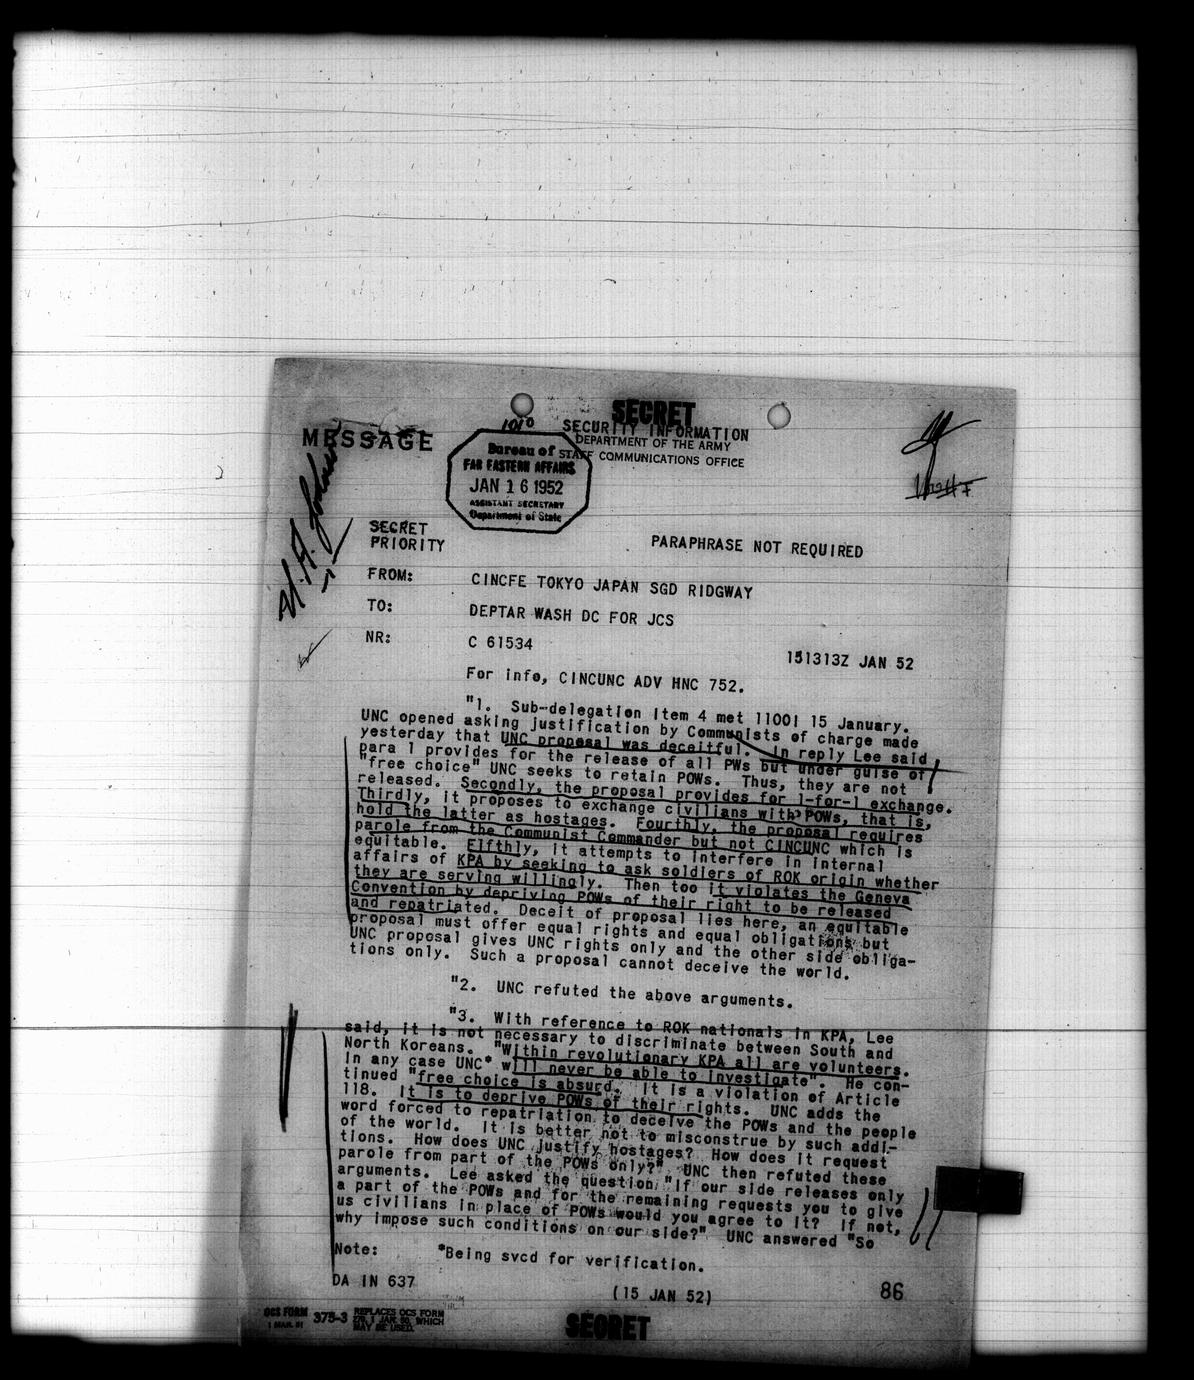 SECRET
1010
SECURITY INFORMATION
MESSAGE
DEPARTMENT OF THE ARMY
STAFF COMMUNICATIONS OFFICE
Bureau of
FAR EASTERN AFFAIRS
JAN 16 1952
ASSISTANT SECRETARY
Department of State
SECRET
PRIORITY
PARAPHRASE NOT REQUIRED
FROM: CINCFE TOKYO JAPAN SGD RIDGWAY
TO: DEPTAR WASH DC FOR JCS
NR: C 61534
151313Z JAN 52
For info, CINCUNC ADV HNC 752.
"1. Sub-delegation Item 4 met 1100I 15 January.
UNC opened asking justification by Communists of charge made
yesterday that UNC proposal was deceitful. In reply Lee said
para 1 provides for the release of all PWs but under guise of
"free choice" UNC seeks to retain POWs. Thus, they are not
released. Secondly, the proposal provides for 1-for-1 exchange.
Thirdly, it proposes to exchange civilians with POWs, that is,
hold the latter as hostages. Fourthly, the proposal requires
parole from the Communist Commander but not CINCUNC which is
equitable. Fifthly, it attempts to interfere in internal
affairs of KPA by seeking to ask soldiers of ROK origin whether
they are serving willingly. Then too it violates the Geneva
Convention by depriving POWs of their right to be released
and repatriated. Deceit of proposal lies here, an equitable
proposal must offer equal rights and equal obligations but
UNC proposal gives UNC rights only and the other side obliga-
tions only. Such a proposal cannot deceive the world.
"2. UNC refuted the above arguments.
"3. With reference to ROK nationals in KPA, Lee
said, it is not necessary to discriminate between South and
North Koreans. "Within revolutionary KPA all are volunteers.
In any case UNC* will never be able to investigate". He con-
tinued "free choice is absurd. It is a violation of Article
118. It is to deprive POWs of their rights. UNC adds the
word forced to repatriation to deceive the POWs and the people
of the world. It is better not to misconstrue by such addi-
tions. How does UNC justify hostages? How does it request
parole from part of the POWs only?" UNC then refuted these
arguments. Lee asked the question "If our side releases only
a part of the POWs and for the remaining requests you to give
us civilians in place of POWs would you agree to it? If not,
why impose such conditions on our side?" UNC answered "So
Note: *Being svcd for verification.
DA IN 637
(15 JAN 52)
86
OCS FORM
1 MAR. 51
375-3
REPLACES OCS FORM
1 JAN. 50, WHICH
MAY BE USED.
SECRET